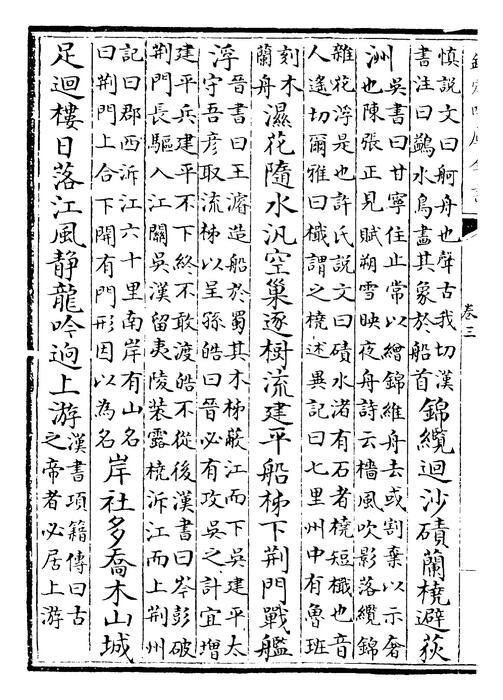 卷三
慎說文曰舸舟也聲古我切漢
書注曰鷁水鳥畫其象於船首
錦纜迴沙磧蘭橈避荻
洲
吳書曰甘寧住止常以繒錦維舟去或割棄以示奢
也陳張正見賦朔雪映夜舟詩云檣風吹影落纜錦
雜花浮是也許氏說文曰磧水渚有石者橈短檝也音
人遙切爾雅曰檝謂之橈述異記曰七里州中有魯班
刻木
蘭舟
濕花隨水汎空巢逐樹流建平船柹下荊門戰艦
浮
晉書曰王濬造船於蜀其木柹蔽江而下吳建平太
守吾彥取流柹以呈孫皓曰晉必有攻吳之計宜增
建平兵建平不下終不敢渡皓不從後漢書曰岑彭破
荊門長驅入江關吳漢留夷陵裝露橈泝江而上荊州
記曰郡西泝江六十里南岸有山名
曰荊門上合下開有門形因以為名
岸社多喬木山城
足迴樓日落江風静龍吟逈上游
漢書項籍傳曰古
之帝者必居上游